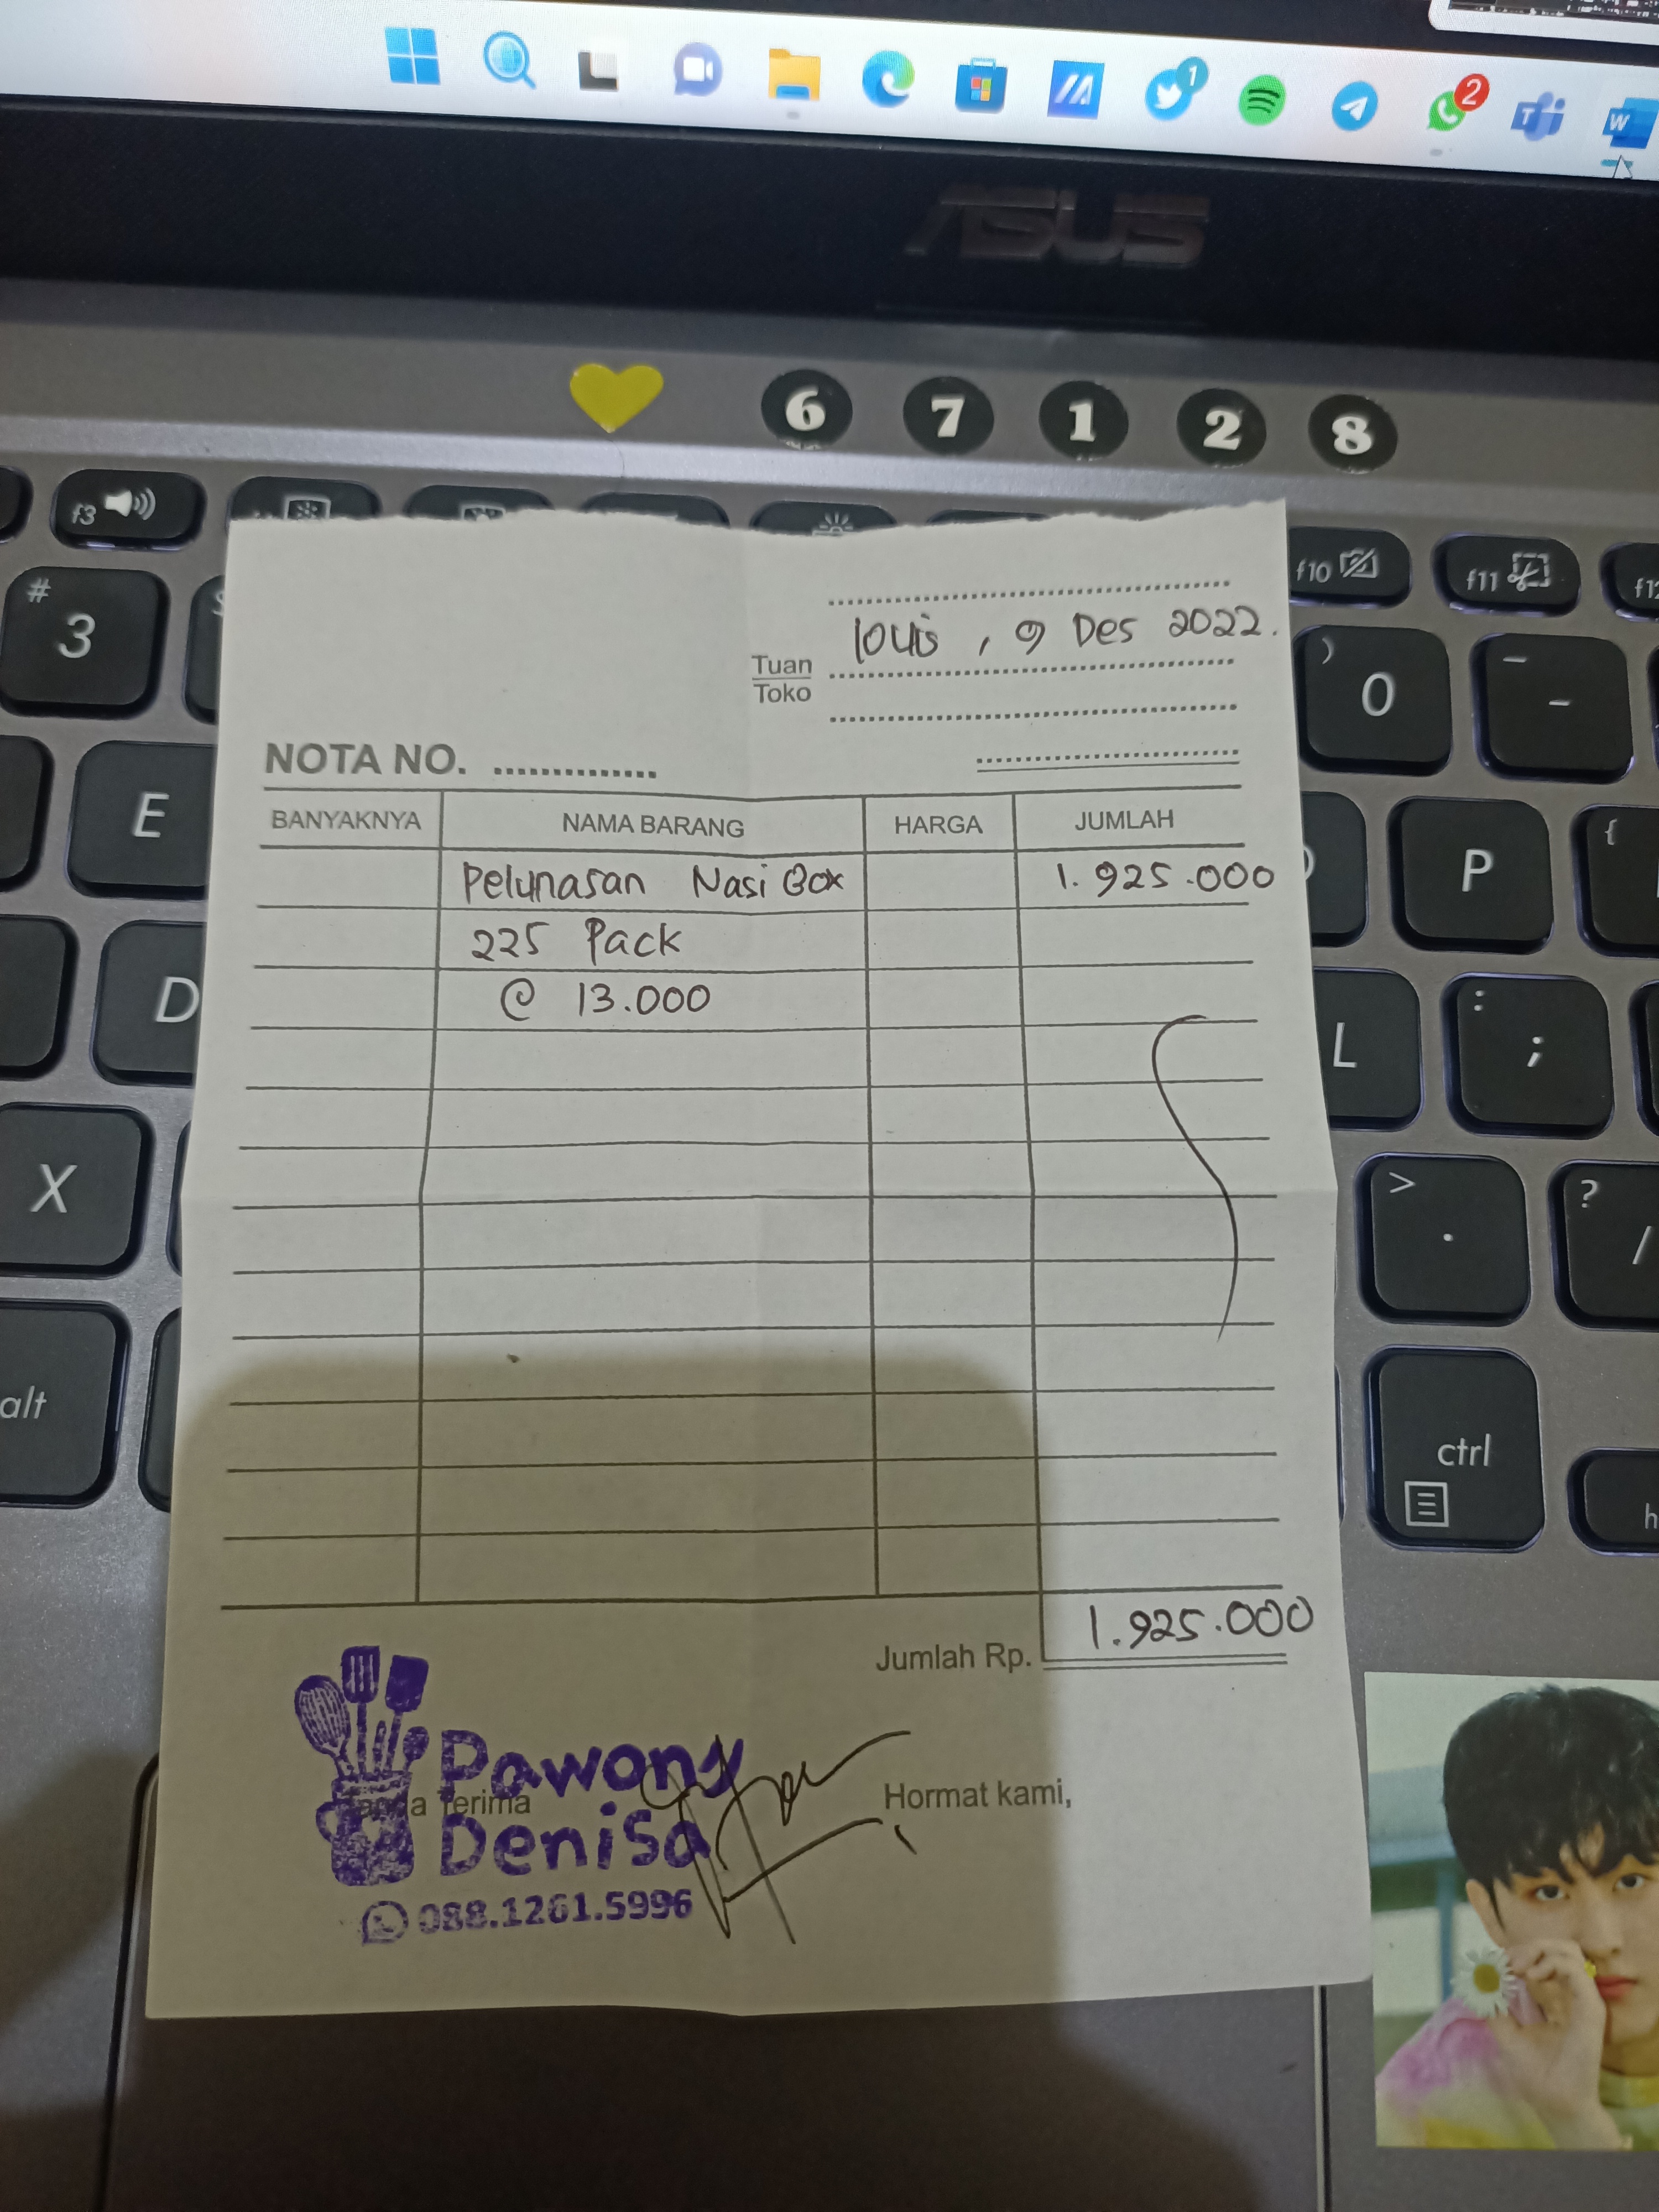 1
2
W
ASUS
6 7 1 2 8
f3
f10
f11
f12
# 3
) 0
_ -
louis , 9 Des 2022.
Tuan
Toko
NOTA NO. ..............
E
P
{
BANYAKNYA NAMA BARANG HARGA JUMLAH
Pelunasan Nasi Box 1.925.000
225 Pack
@ 13.000
D
L
: ;
X
> .
? /
alt
ctrl
h
Jumlah Rp. 1.925.000
Tanda Terima
Hormat kami,
Pawong
Denisa
088.1261.5996